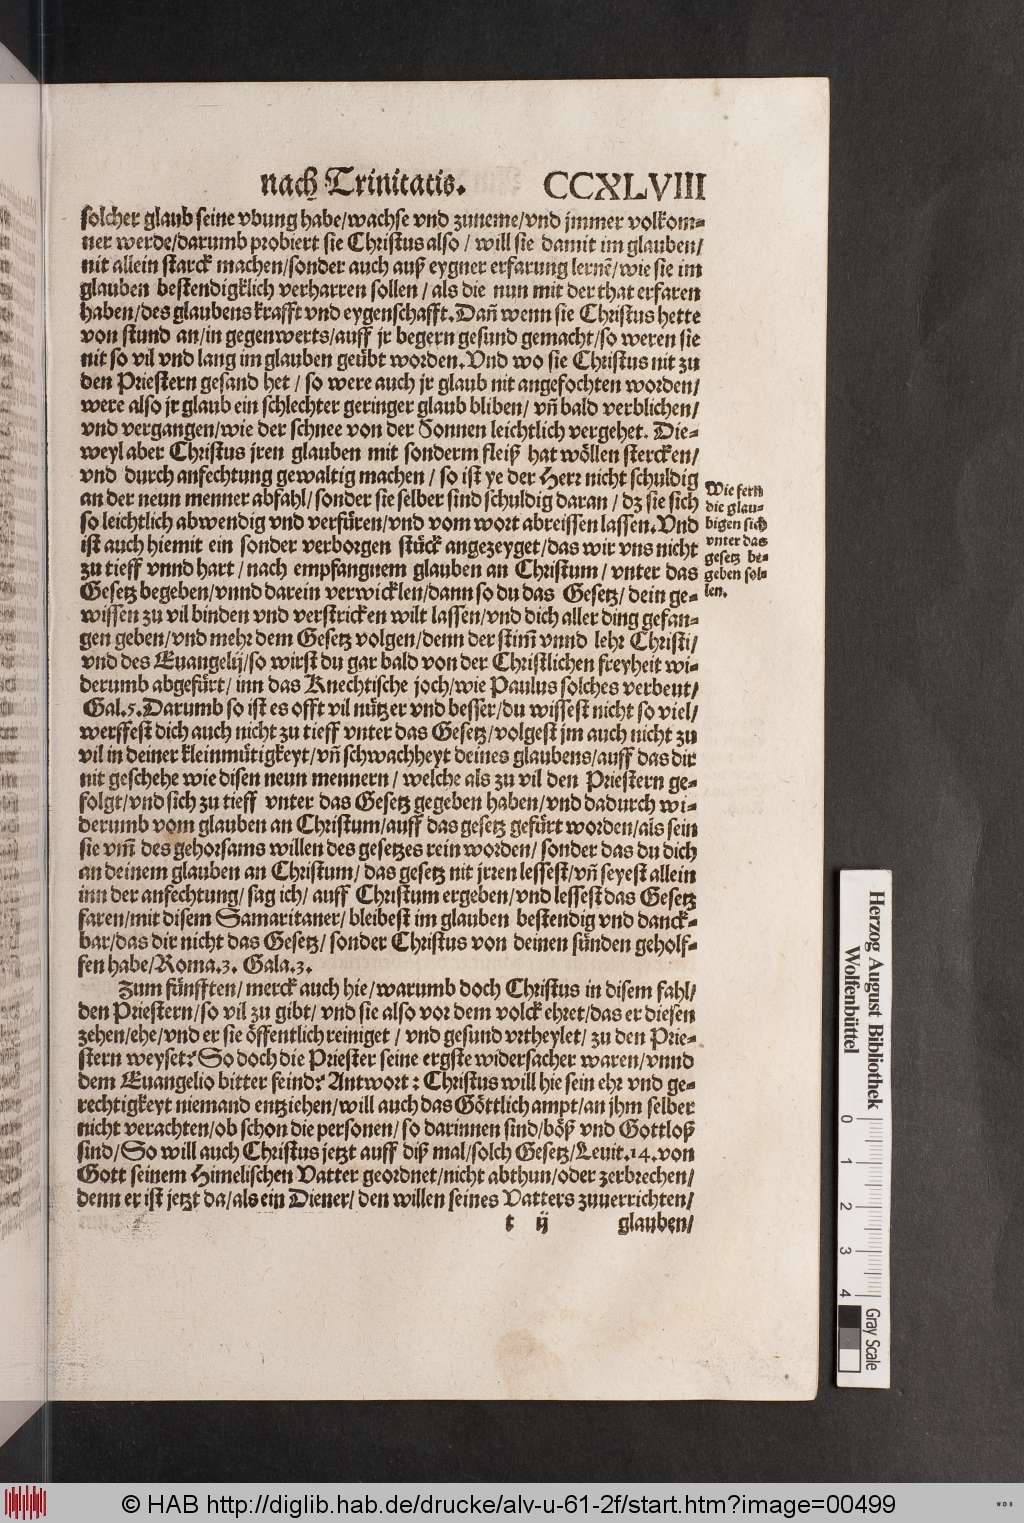 nach Trinitatis. CCXLVIII
solcher glaub seine vbung habe/wachse vnd zuneme/vnd jmmer volkom-
ner werde/darumb probiert sie Christus also / will sie damit im glauben/
nit allein starck machen/sonder auch auß eygner erfarung lernẽ/wie sie im
glauben bestendigklich verharren sollen / als die nun mit der that erfaren
haben/des glaubens krafft vnd eygenschafft. Dañ wenn sie Christus hette
von stund an/in gegenwerts/auff jr begern gesund gemacht/so weren sie
nit so vil vnd lang im glauben geübt worden. Vnd wo sie Christus nit zu
den Priestern gesand het / so were auch jr glaub nit angefochten worden/
were also jr glaub ein schlechter geringer glaub bliben/ vñ bald verblichen/
vnd vergangen/wie der schnee von der Sonnen leichtlich vergehet. Die-
weyl aber Christus jren glauben mit sonderm fleiß hat wöllen stercken/
vnd durch anfechtung gewaltig machen / so ist ye der Herr nicht schuldig
an der neun menner abfahl/sonder sie selber sind schuldig daran / dz sie sich
so leichtlich abwendig vnd verfüren/vnd vom wort abreissen lassen. Vnd
ist auch hiemit ein sonder verborgen stück angezeyget/das wir vns nicht
zu tieff vnnd hart / nach empfangnem glauben an Christum / vnter das
Gesetz begeben/vnnd darein verwicklen/dann so du das Gesetz/ dein ge-
wissen zu vil binden vnd verstricken wilt lassen/vnd dich aller ding gefan-
gen geben/vnd mehr dem Gesetz volgen/denn der stim̃ vnnd lehr Christi/
vnd des Euangelij/so wirst du gar bald von der Christlichen freyheit wi-
derumb abgefürt/ inn das Knechtische joch/wie Paulus solches verbeut/
Gal.5. Darumb so ist es offt vil nützer vnd besser/du wissest nicht so viel/
werffest dich auch nicht zu tieff vnter das Gesetz/volgest jm auch nicht zu
vil in deiner kleinmütigkeyt/vñ schwachheyt deines glaubens/auff das dir
nit geschehe wie disen neun mennern / welche als zu vil den Priestern ge-
folgt/vnd sich zu tieff vnter das Gesetz gegeben haben/vnd dadurch wi-
derumb vom glauben an Christum/auff das gesetz gefürt worden/als sein
sie vm̃ des gehorsams willen des gesetzes rein worden/ sonder das du dich
an deinem glauben an Christum/ das gesetz nit jrren lessest/vñ seyest allein
inn der anfechtung/ sag ich/ auff Christum ergeben/vnd lessest das Gesetz
faren/mit disem Samaritaner/ bleibest im glauben bestendig vnd danck-
bar/das dir nicht das Gesetz/ sonder Christus von deinen sünden geholf-
fen habe/Roma.3. Gala.3.
Zum fünfften/ merck auch hie/warumb doch Christus in disem fahl/
den Priestern/so vil zu gibt/ vnd sie also vor dem volck ehret/das er diesen
zehen/ehe/vnd er sie öffentlich reiniget / vnd gesund vrtheylet/ zu den Prie-
stern weyset? So doch die Priester seine ergste widersacher waren/vnnd
dem Euangelio bitter feind? Antwort: Christus will hie sein ehr vnd ge-
rechtigkeyt niemand entziehen/will auch das Göttlich ampt/an jhm selber
nicht verachten/ob schon die personen/ so darinnen sind/böß vnd Gottloß
sind/So will auch Christus jetzt auff diß mal/solch Gesetz/Leuit.14. von
Gott seinem Himelischen Vatter geordnet/nicht abthun/oder zerbrechen/
denn er ist jetzt da/als ein Diener/ den willen seines Vatters zuuerrichten/
t ij glauben/
Wie fern
die glau-
bigen sich
vnter das
gesetz be-
geben sol-
len.
Herzog August Bibliothek
Wolfenbüttel
0 1 2 3 4
Gray Scale
© HAB http://diglib.hab.de/drucke/alv-u-61-2f/start.htm?image=00499